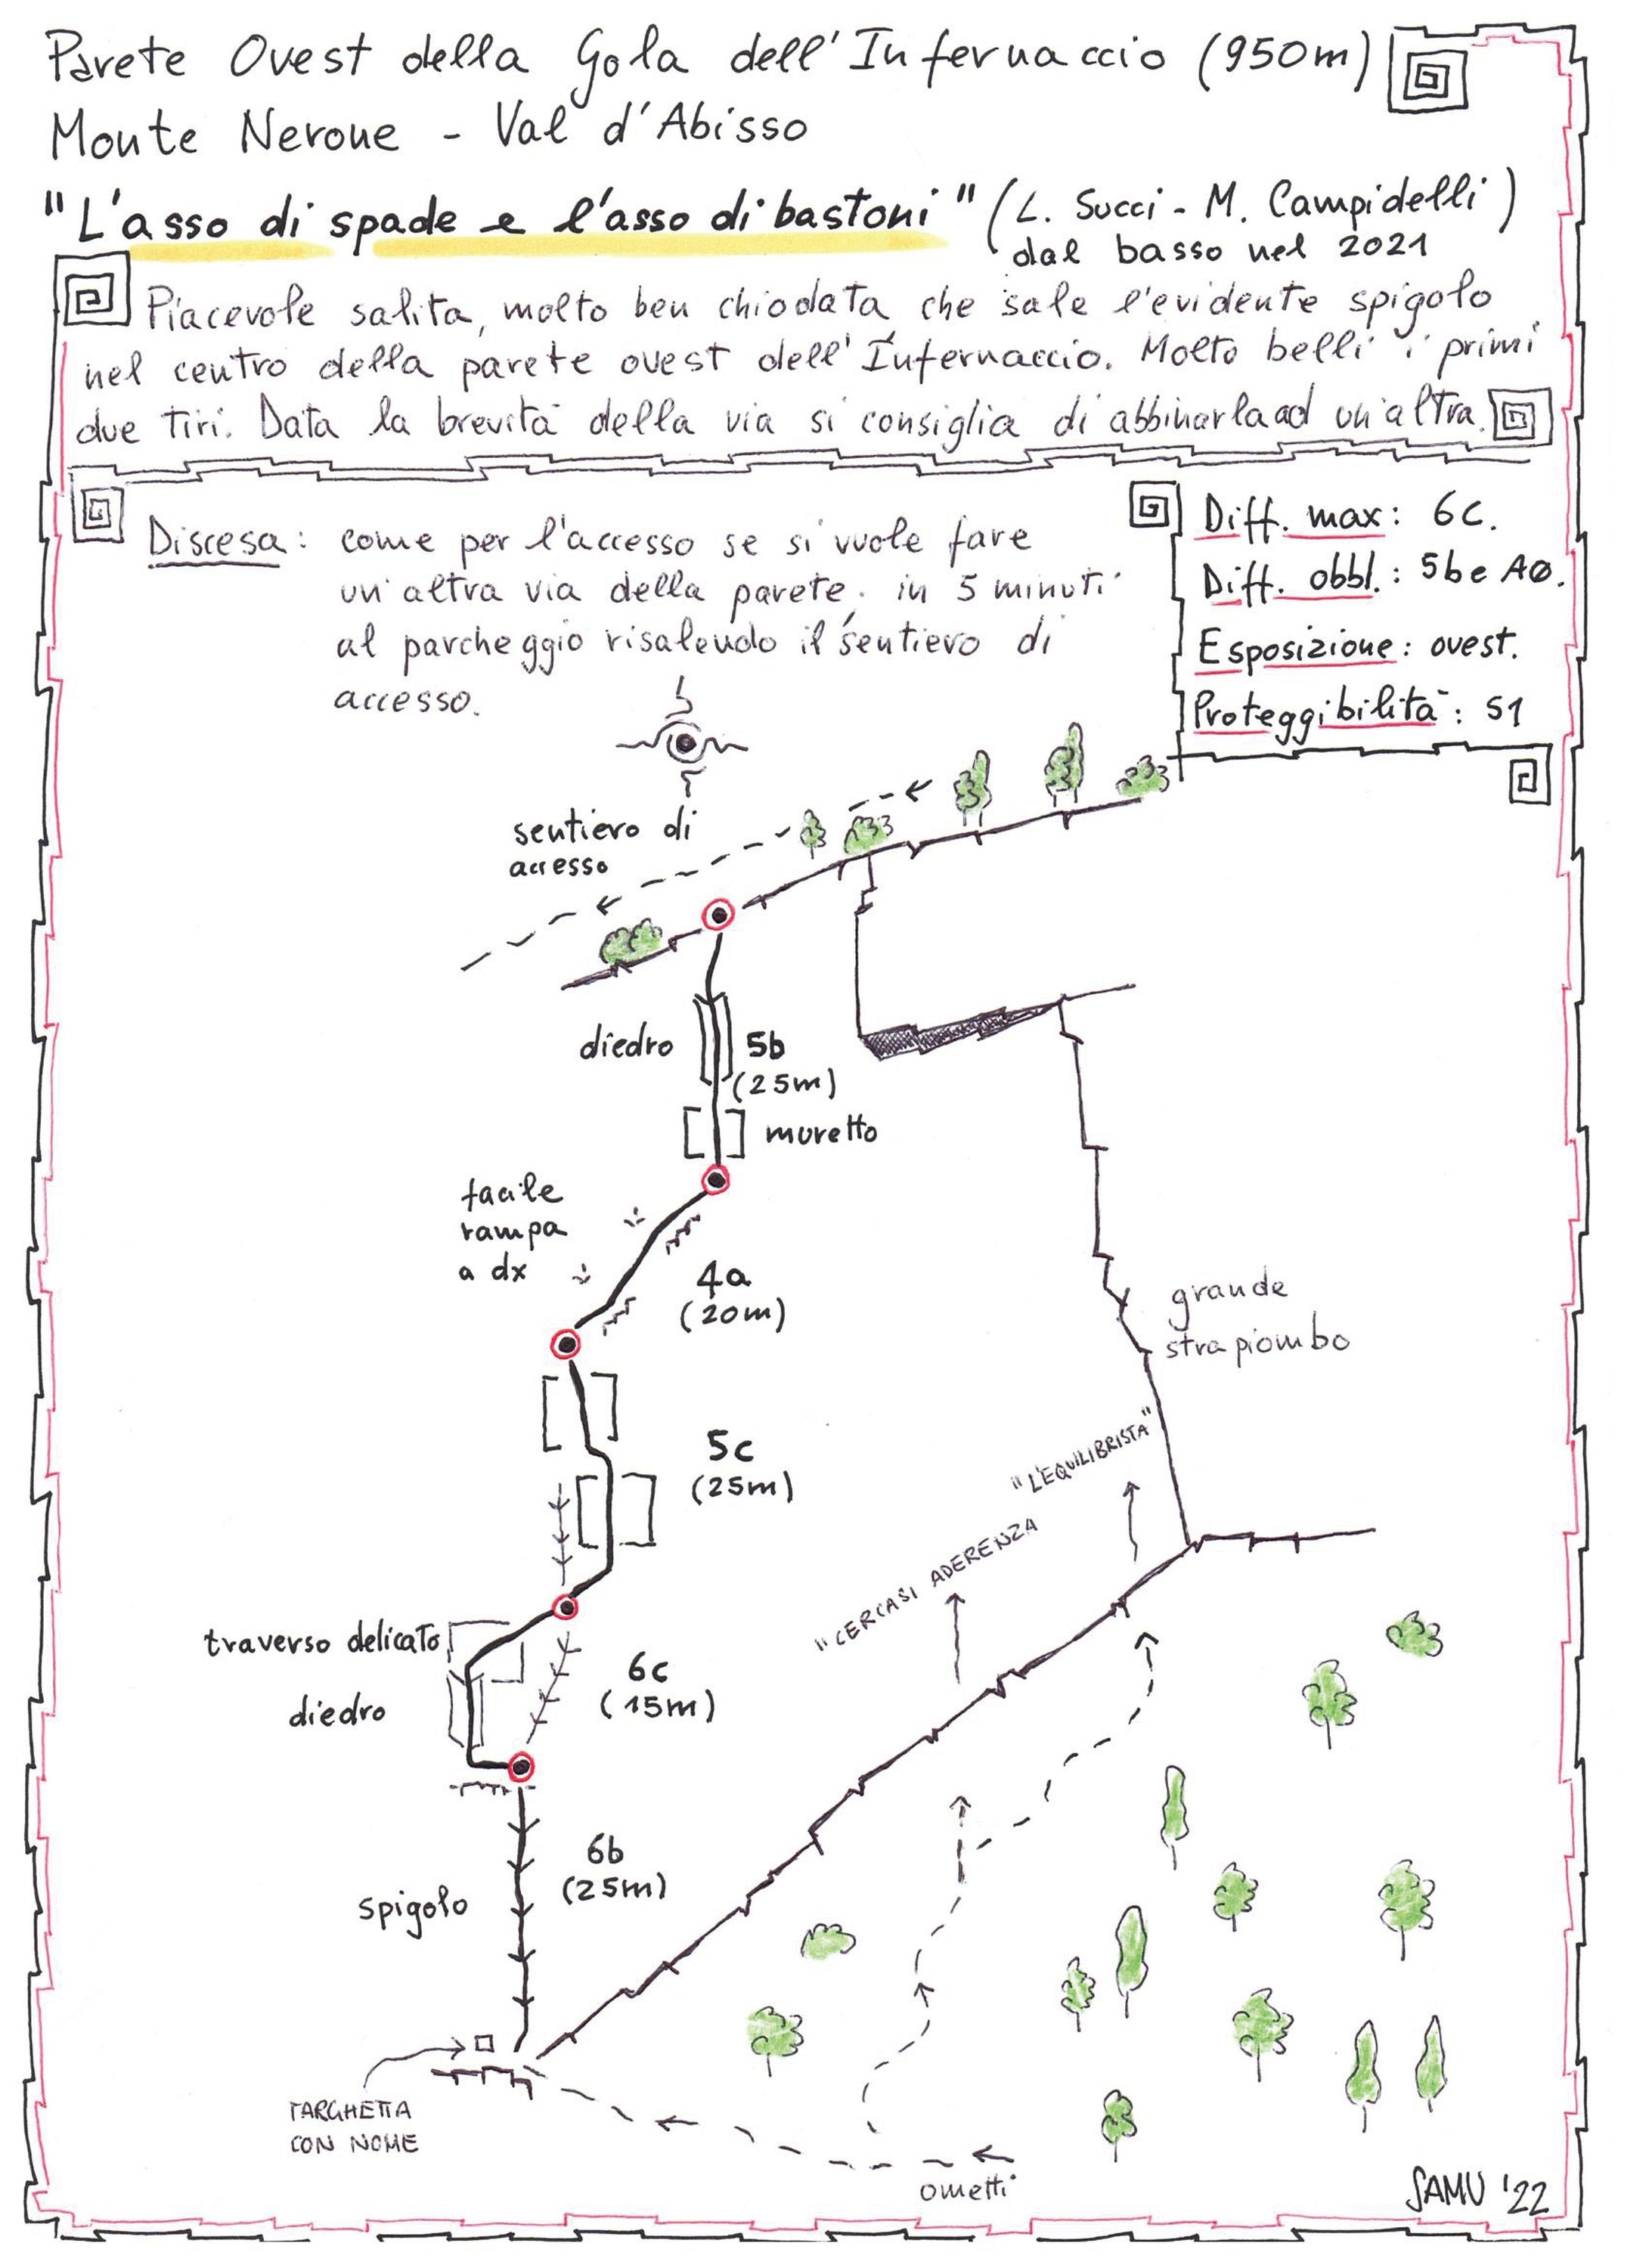 Parete Ovest della Gola dell'Infernaccio (950m)
Monte Nerone - Val d'Abisso
"L'asso di spade e l'asso di bastoni" (L. Succi - M. Campidelli)
dal basso nel 2021
Piacevole salita, molto ben chiodata che sale l'evidente spigolo
nel centro della parete ovest dell'Infernaccio. Molto belli i primi
due tiri. Data la brevità della via si consiglia di abbinarla ad un'altra.
Discesa: come per l'accesso se si vuole fare
un'altra via della parete. in 5 minuti
al parcheggio risalendo il sentiero di
accesso.
Diff. max: 6c.
Diff. obbl.: 5b e A0.
Esposizione: ovest.
Proteggibilità: S1
sentiero di
accesso
diedro
5b
(25m)
muretto
facile
rampa
a dx
4a
(20m)
grande
strapiombo
5c
(25m)
"L'EQUILIBRISTA"
"CERCASI ADERENZA
traverso delicato
diedro
6c
(15m)
6b
(25m)
spigolo
TARGHETTA
CON NOME
ometti
SAMU '22